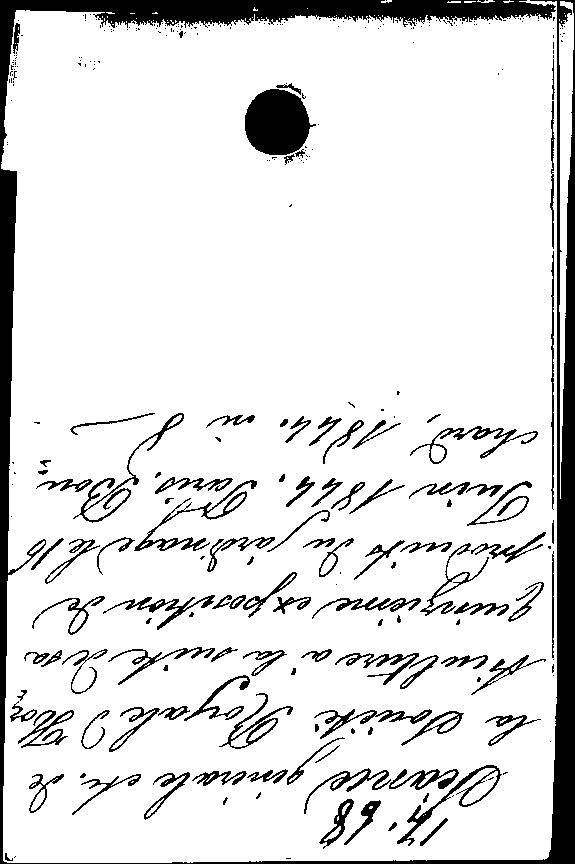 17. 68
Séance générale etc. de
la Société Royale d'Hor=
ticulture à la suite de sa
quinzième exposition de
produits du jardinage le 16
Juin 1844. Paris. Bou=
chard, 1844. in 8